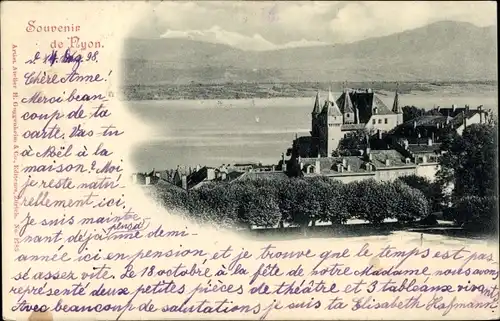 Souvenir
de Nyon.
Chère Anne!
Merci beau-
coup de ta
carte. Vas-tu
à Noël à la
maison? Moi
je reste natu-
rellement ici.
Je suis mainte-
nant déjà une demi-
pensé
année ici en pension, et je trouve que le temps est pas-
sé assez vite. Le 18 octobre à la fête de notre Madame, nous avons
représenté deux petites pièces de théâtre et 3 tableaux vivants
Avec beaucoup de salutations je suis ta Elisabeth Hofmann